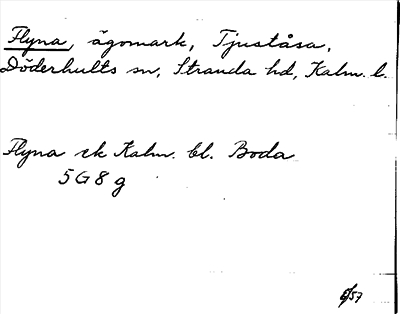 Flyna, ägomark, Tjuståsa,
Döderhults sn, Stranda hd, Kalm. l.
Flyna ek Kalm. bl. Boda
5 G 8 g
6/57